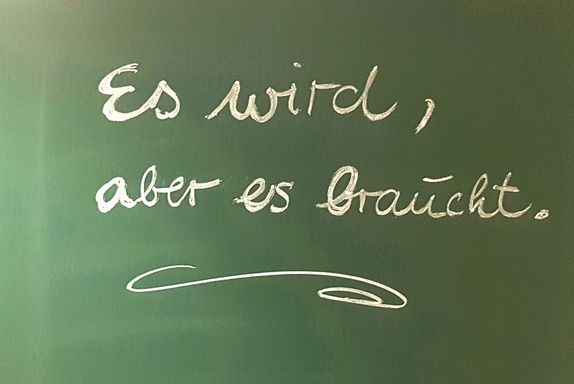 Es wird,
aber es braucht.